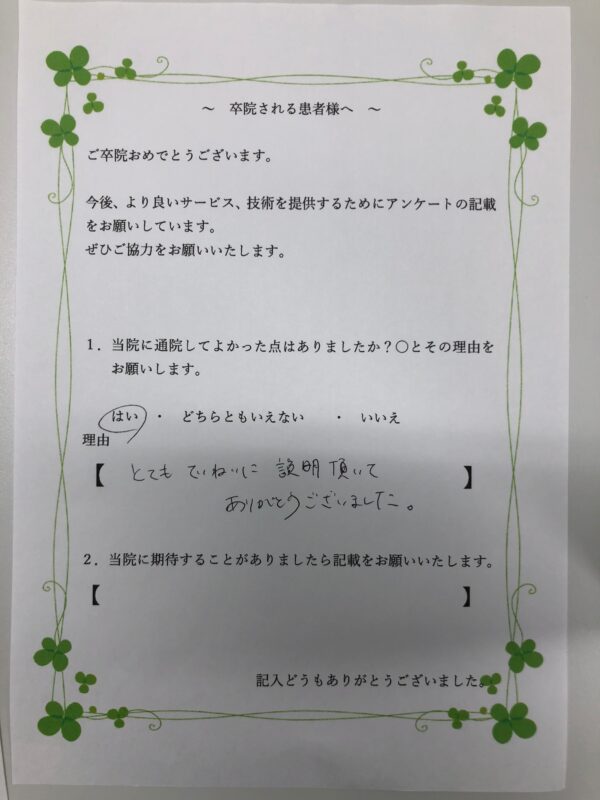 ～　卒院される患者様へ　～
ご卒院おめでとうございます。
今後、より良いサービス、技術を提供するためにアンケートの記載
をお願いしています。
ぜひご協力をお願いいたします。
１．当院に通院してよかった点はありましたか？○とその理由を
お願いします。
はい　・　どちらともいえない　・　いいえ
理由
【　とても ていねいに 説明頂いて　】
ありがとうございました。
２．当院に期待することがありましたら記載をお願いいたします。
【　】
記入どうもありがとうございました。